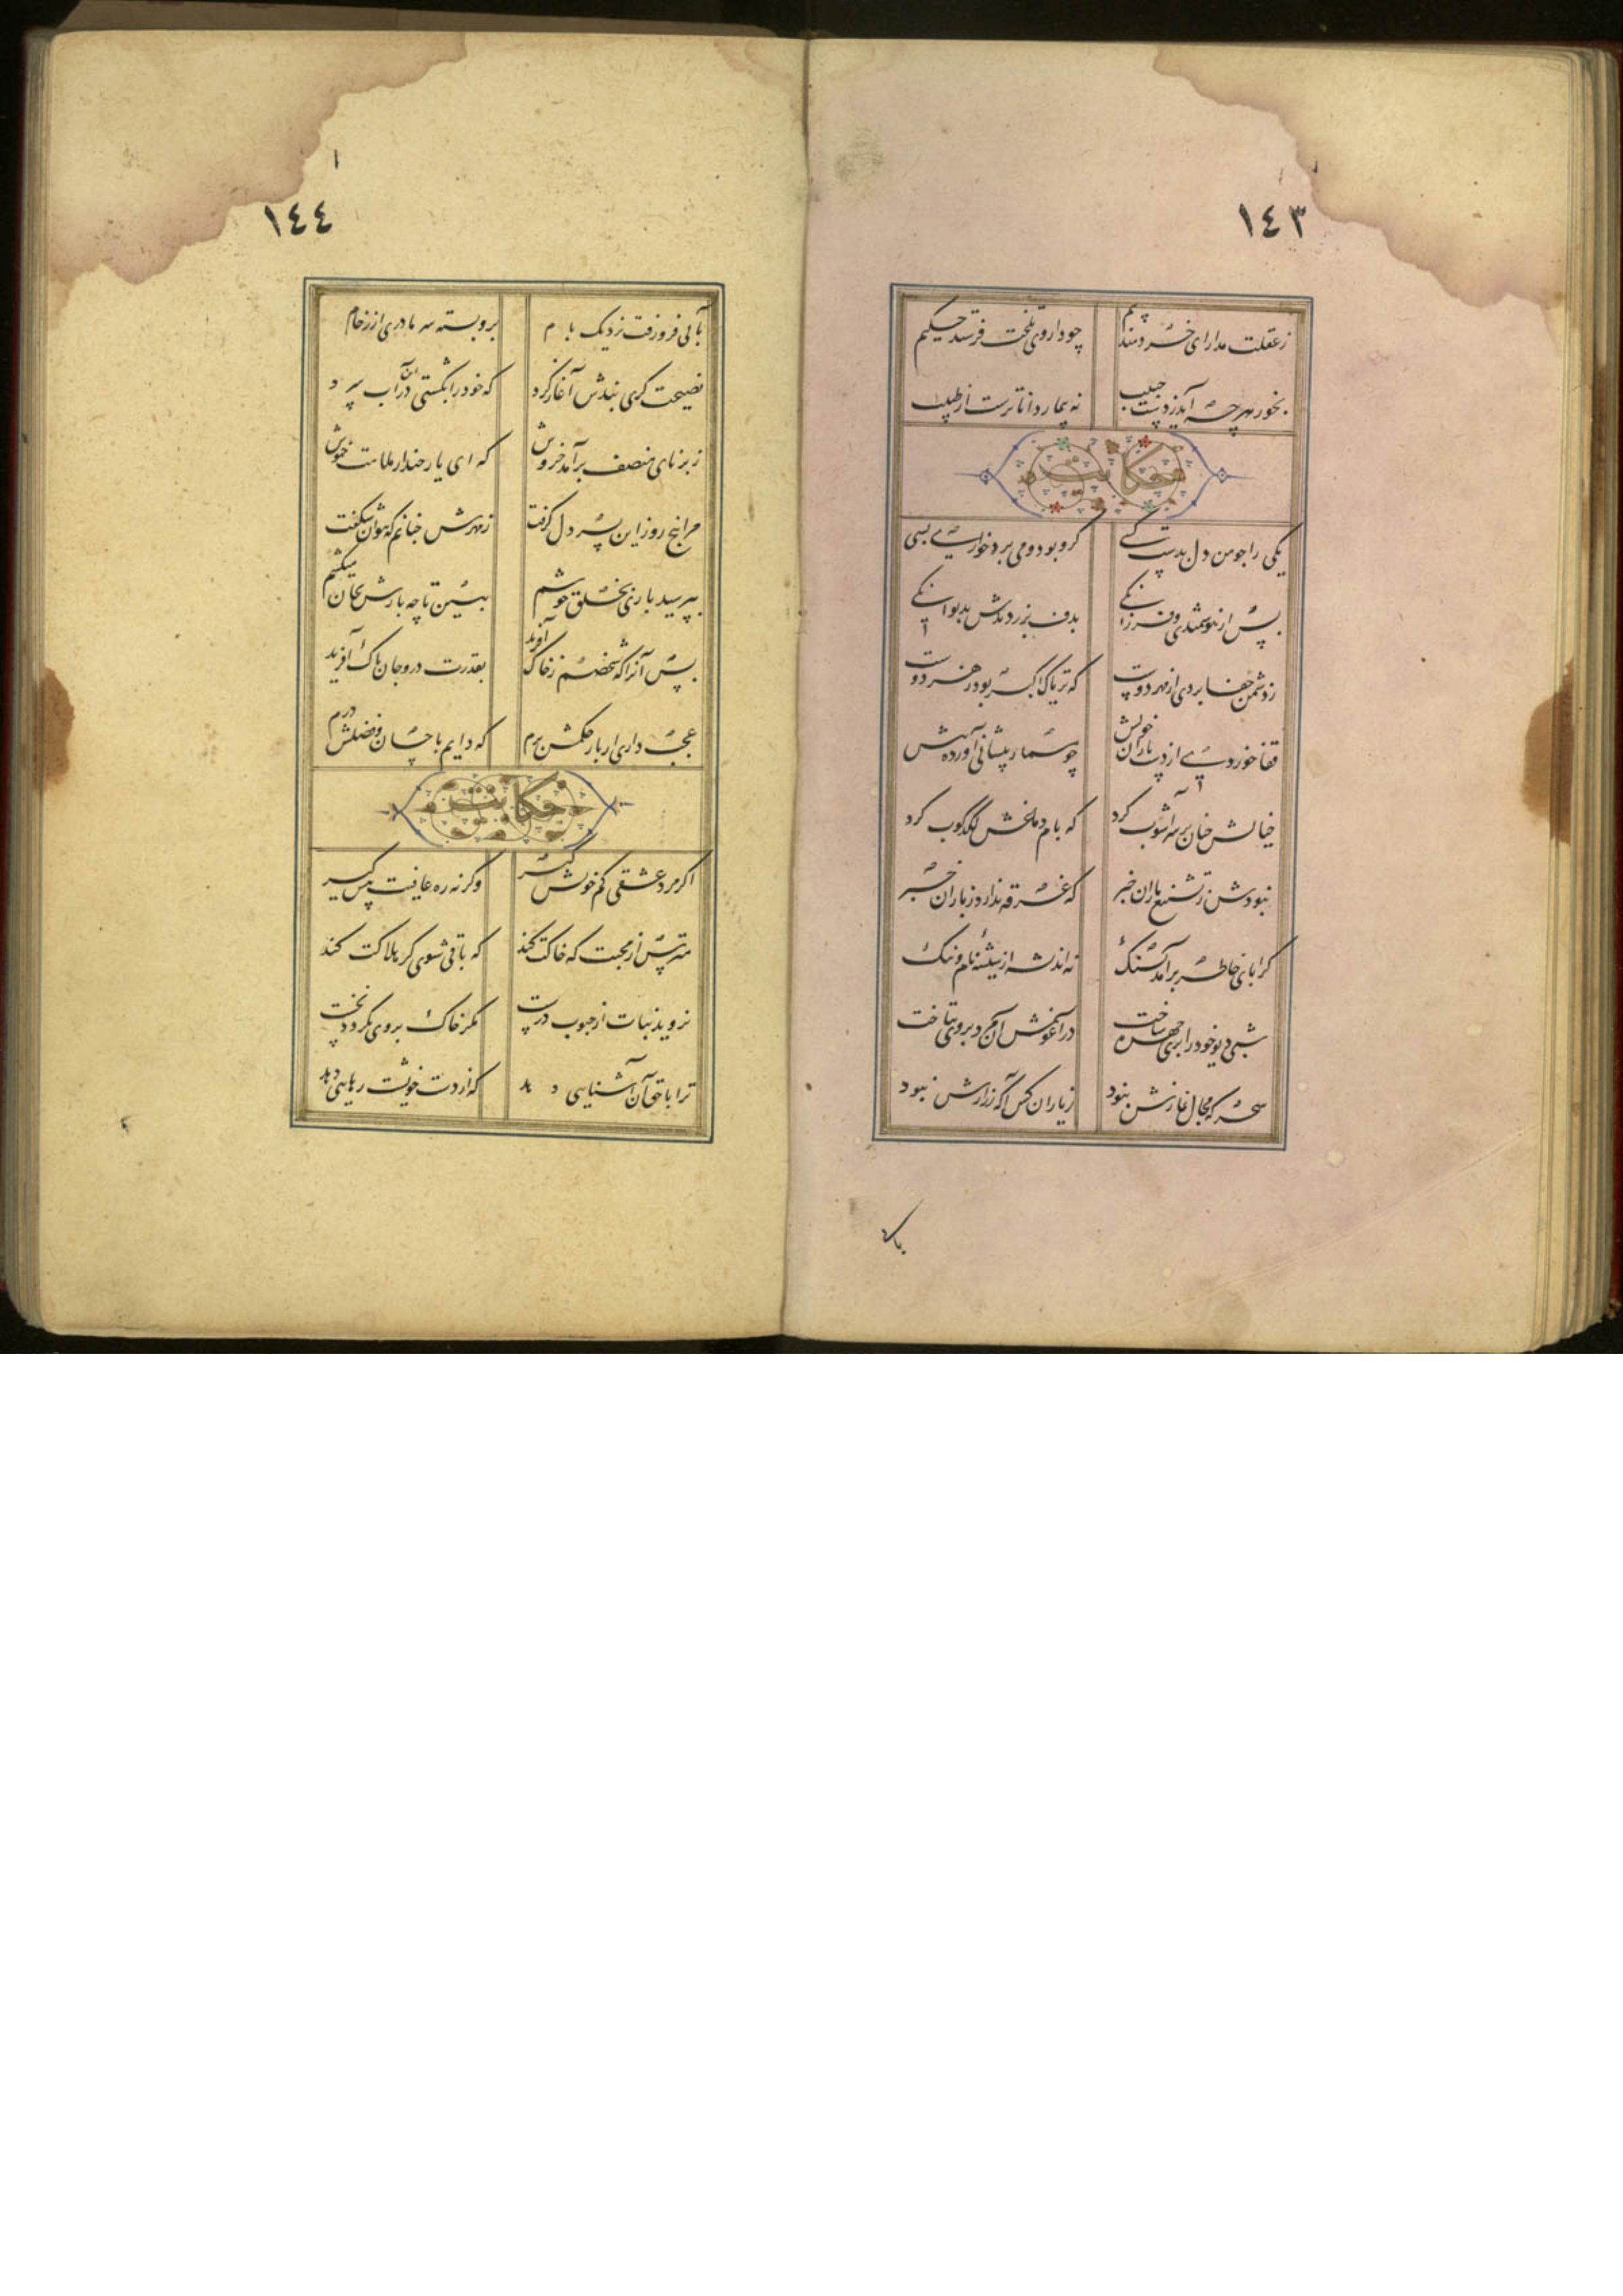 ١٤٣
ز عقلت مدارای خردمند بیم چو داروی تلخت فرستد حکیم
بخور هرچه آید ز دست حبیب نه بیمار داناترست از طبیب
حکایت
یکی را چو من دل بدست کسی گرو بود و می برد خواری بسی
پس از هوشمندی و فرزانگی بدف بر زدندش بدیوانگی
ز دشمن جفا بردی از بهر دوست که تریاک اکبر بود زهر دوست
قفا خوردی از دست یاران خویش چو مسمار پیشانی آورده پیش
خیالش چنان بر سر آشوب کرد که بام دماغش لگدکوب کرد
نبودش ز تشنیع یاران خبر که غرقه ندارد ز باران خبر
کرا پای خاطر برآمد بسنگ نه اندیشد از شیشه نام و ننگ
شبی دیو خود را پری چهره ساخت در آغوش آن مرد بر وی بتاخت
سحرگه مجال نمازش نبود ز یاران کس آگه ز رازش نبود
بآب
١٤٤
بآبی فرو رفت نزدیک بام برو بسته سرما دری از رخام
نصیحت گری پندش آغاز کرد که خود را بکشتی درین آب سرد
ز برنای منصف برآمد خروش که ای یار چند از ملامت خموش
مرا پنج روز این پسر دل گرفت ز مهرش چنانم که نتوان شکفت
نپرسید باری بخلق خوشم ببین تا چه بارش بجان میکشم
پس آنرا که شخصم ز خاک آفرید بقدرت درو جان پاک آفرید
عجب داری ار بار حکمش برم که دایم باحسان و فضلش درم
حکایت
اگر مرد عشقی کم خویش گیر وگرنه ره عافیت پیش گیر
مترس از محبت که خاکت کند که باقی شوی گر هلاکت کند
نروید نبات از حبوب درست مگر خاک بروی بگردد نخست
ترا با حق آن آشنایی دهد که از دست خویشت رهایی دهد